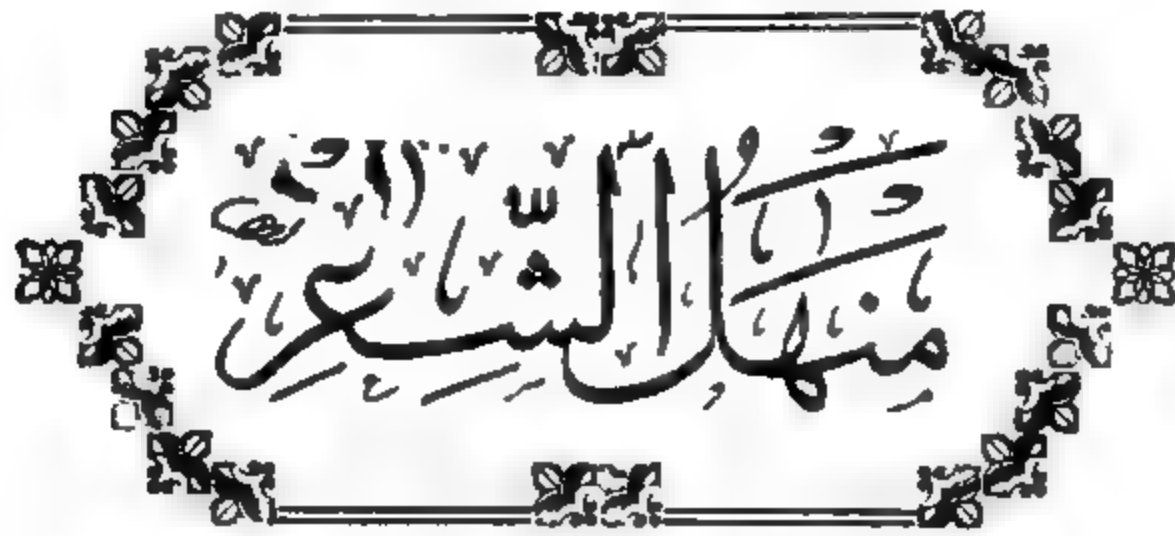 مَنْهَلُ الشِّعْرِ